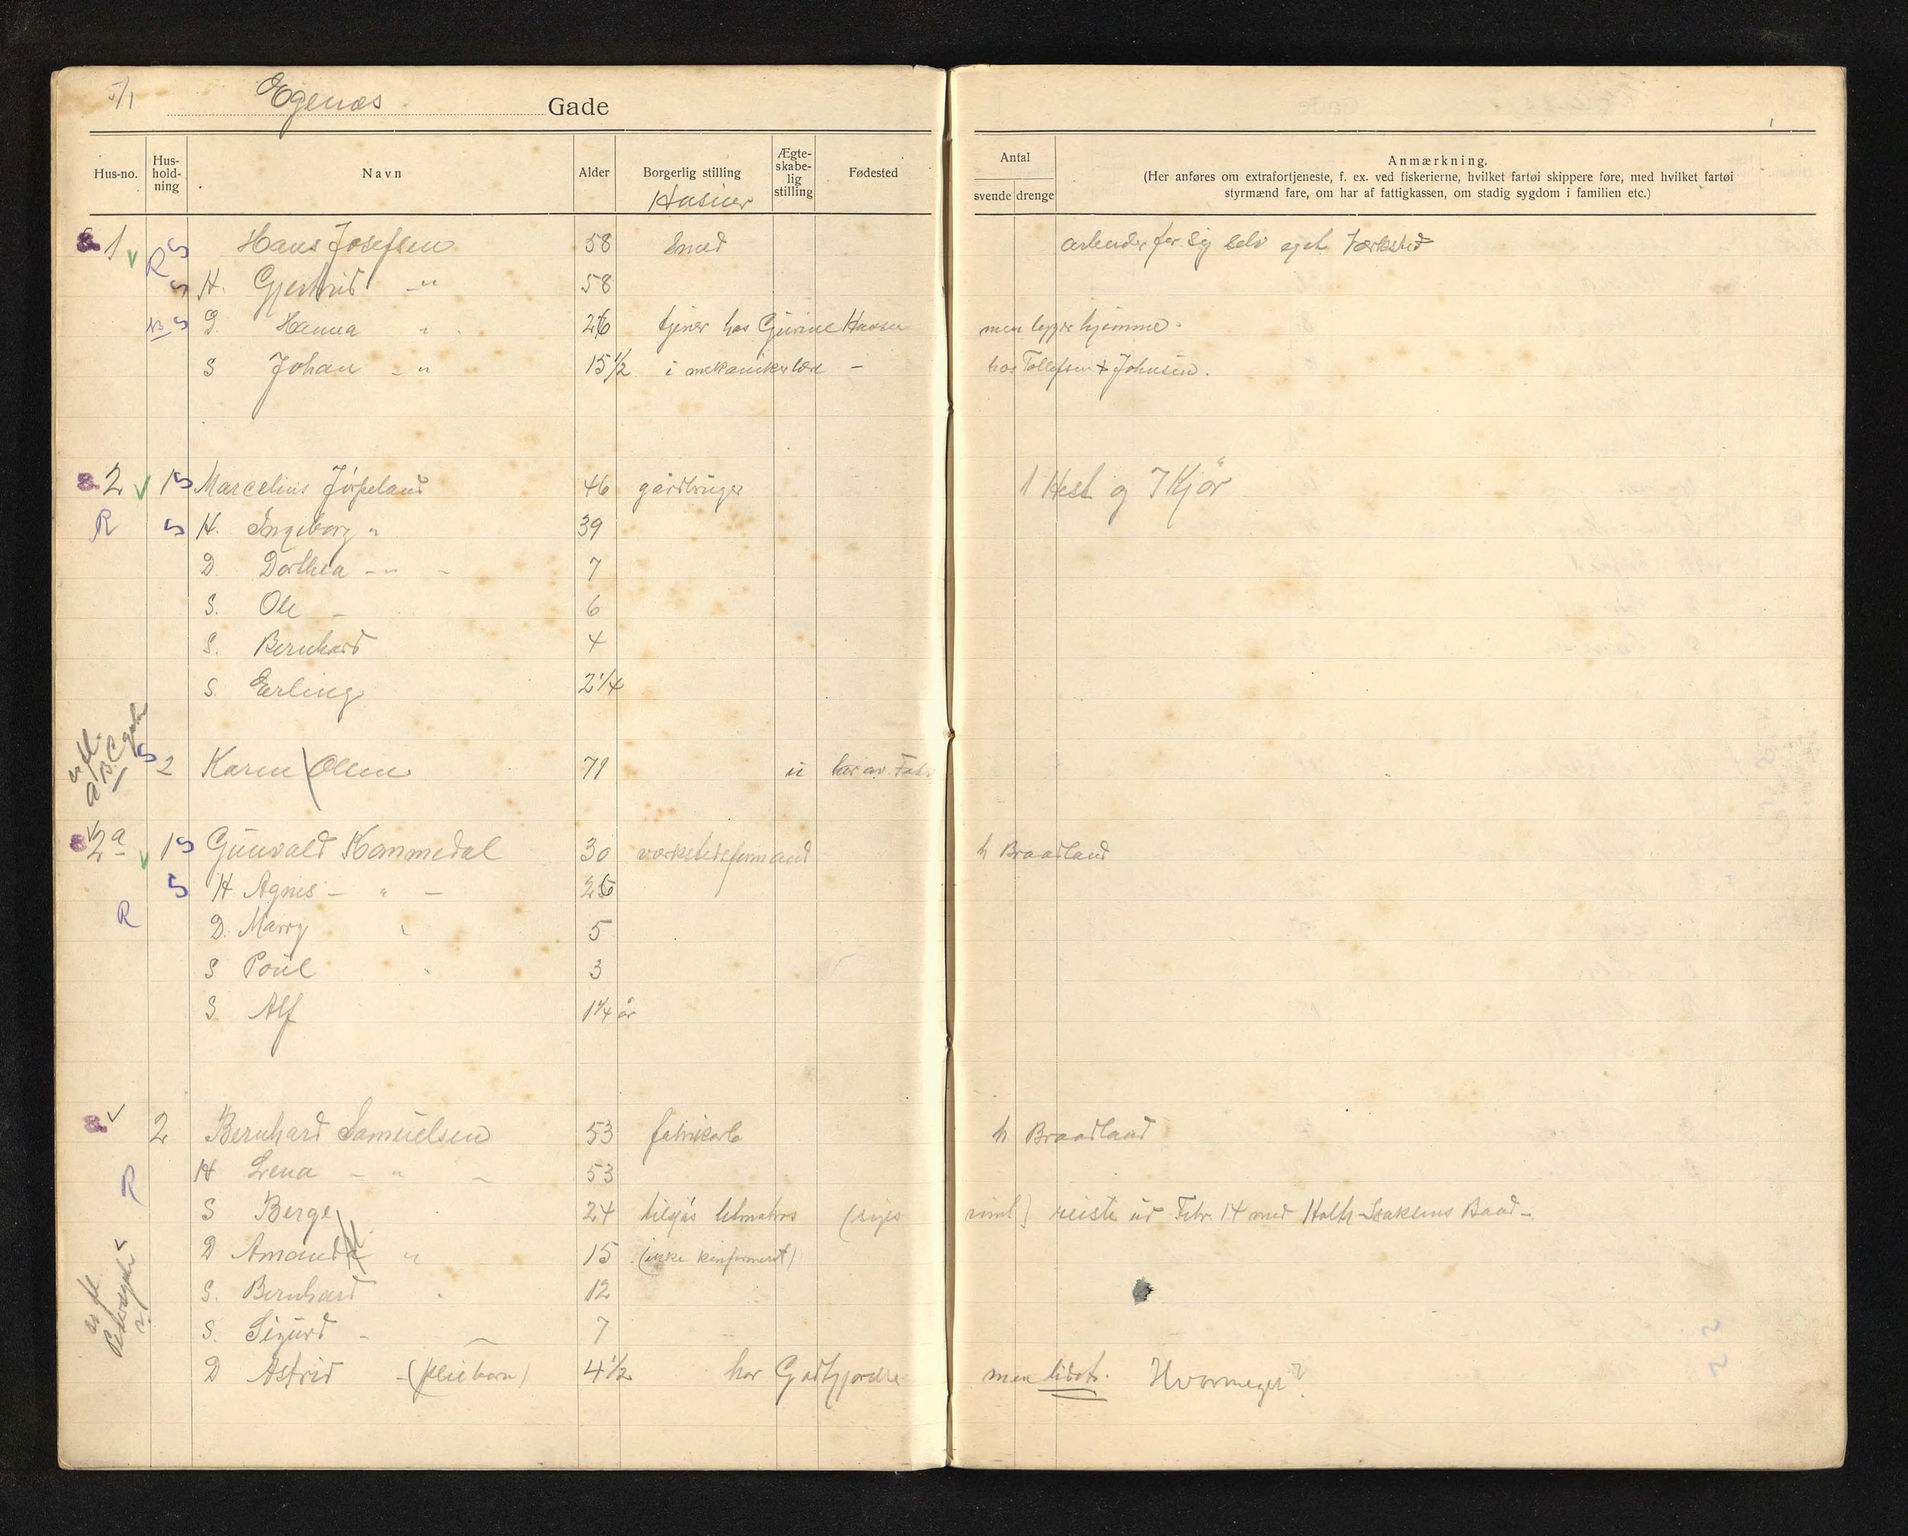 5/1 Egenæs Gade
Hus-no. Hus-hold-ning Navn Alder Borgerlig stilling Ægte-skabe-lig stilling Fødested Antal svende drenge Anmærkning.
(Her anføres om extrafortjeneste, f. ex. ved fiskerierne, hvilket fartøi skippere føre, med hvilket fartøi
styrmænd fare, om har af fattigkassen, om stadig sygdom i familien etc.)
1 R S Hans Josefsen 58 Smed arbeider for sig selv eget Værksted
S H. Gjertrud " 58
S D. Hanna " 26 tjener hos Gurine Hansen men ligger hjemme.
S Johan " 15 1/2 i mekanikerlære hos Tollefsen & Johnsen.
2 1 S Marcelius Jörpeland 46 gårdbruger 1 Hest og 7 Kjör
R S H. Ingeborg " 39
D. Dorthea " 7
S. Ole 6
S. Bernhard 4
S. Erling 2 1/4
S 2 Karen Olsen 71 u har av
2a 1 S Gunvald Kommedal 30 værkstedsformand h Braadland
S H Agnes " 26
R D. Marry " 5
S Poul " 3
S Alf 1 1/4 år
2 Bernhard Samuelsen 53 fabrikarb h Braadland
R H Lena " 53
S Berge 24 tilsjös reiste ud Febr. 14 med Baad
D Amanda " 15 (ikke konfirmeret)
S. Bernhard 12
S. Sigurd 7
D Astrid (pleiebarn) 4 1/2 har Godtgjørelse men lidet. Hvormeget?